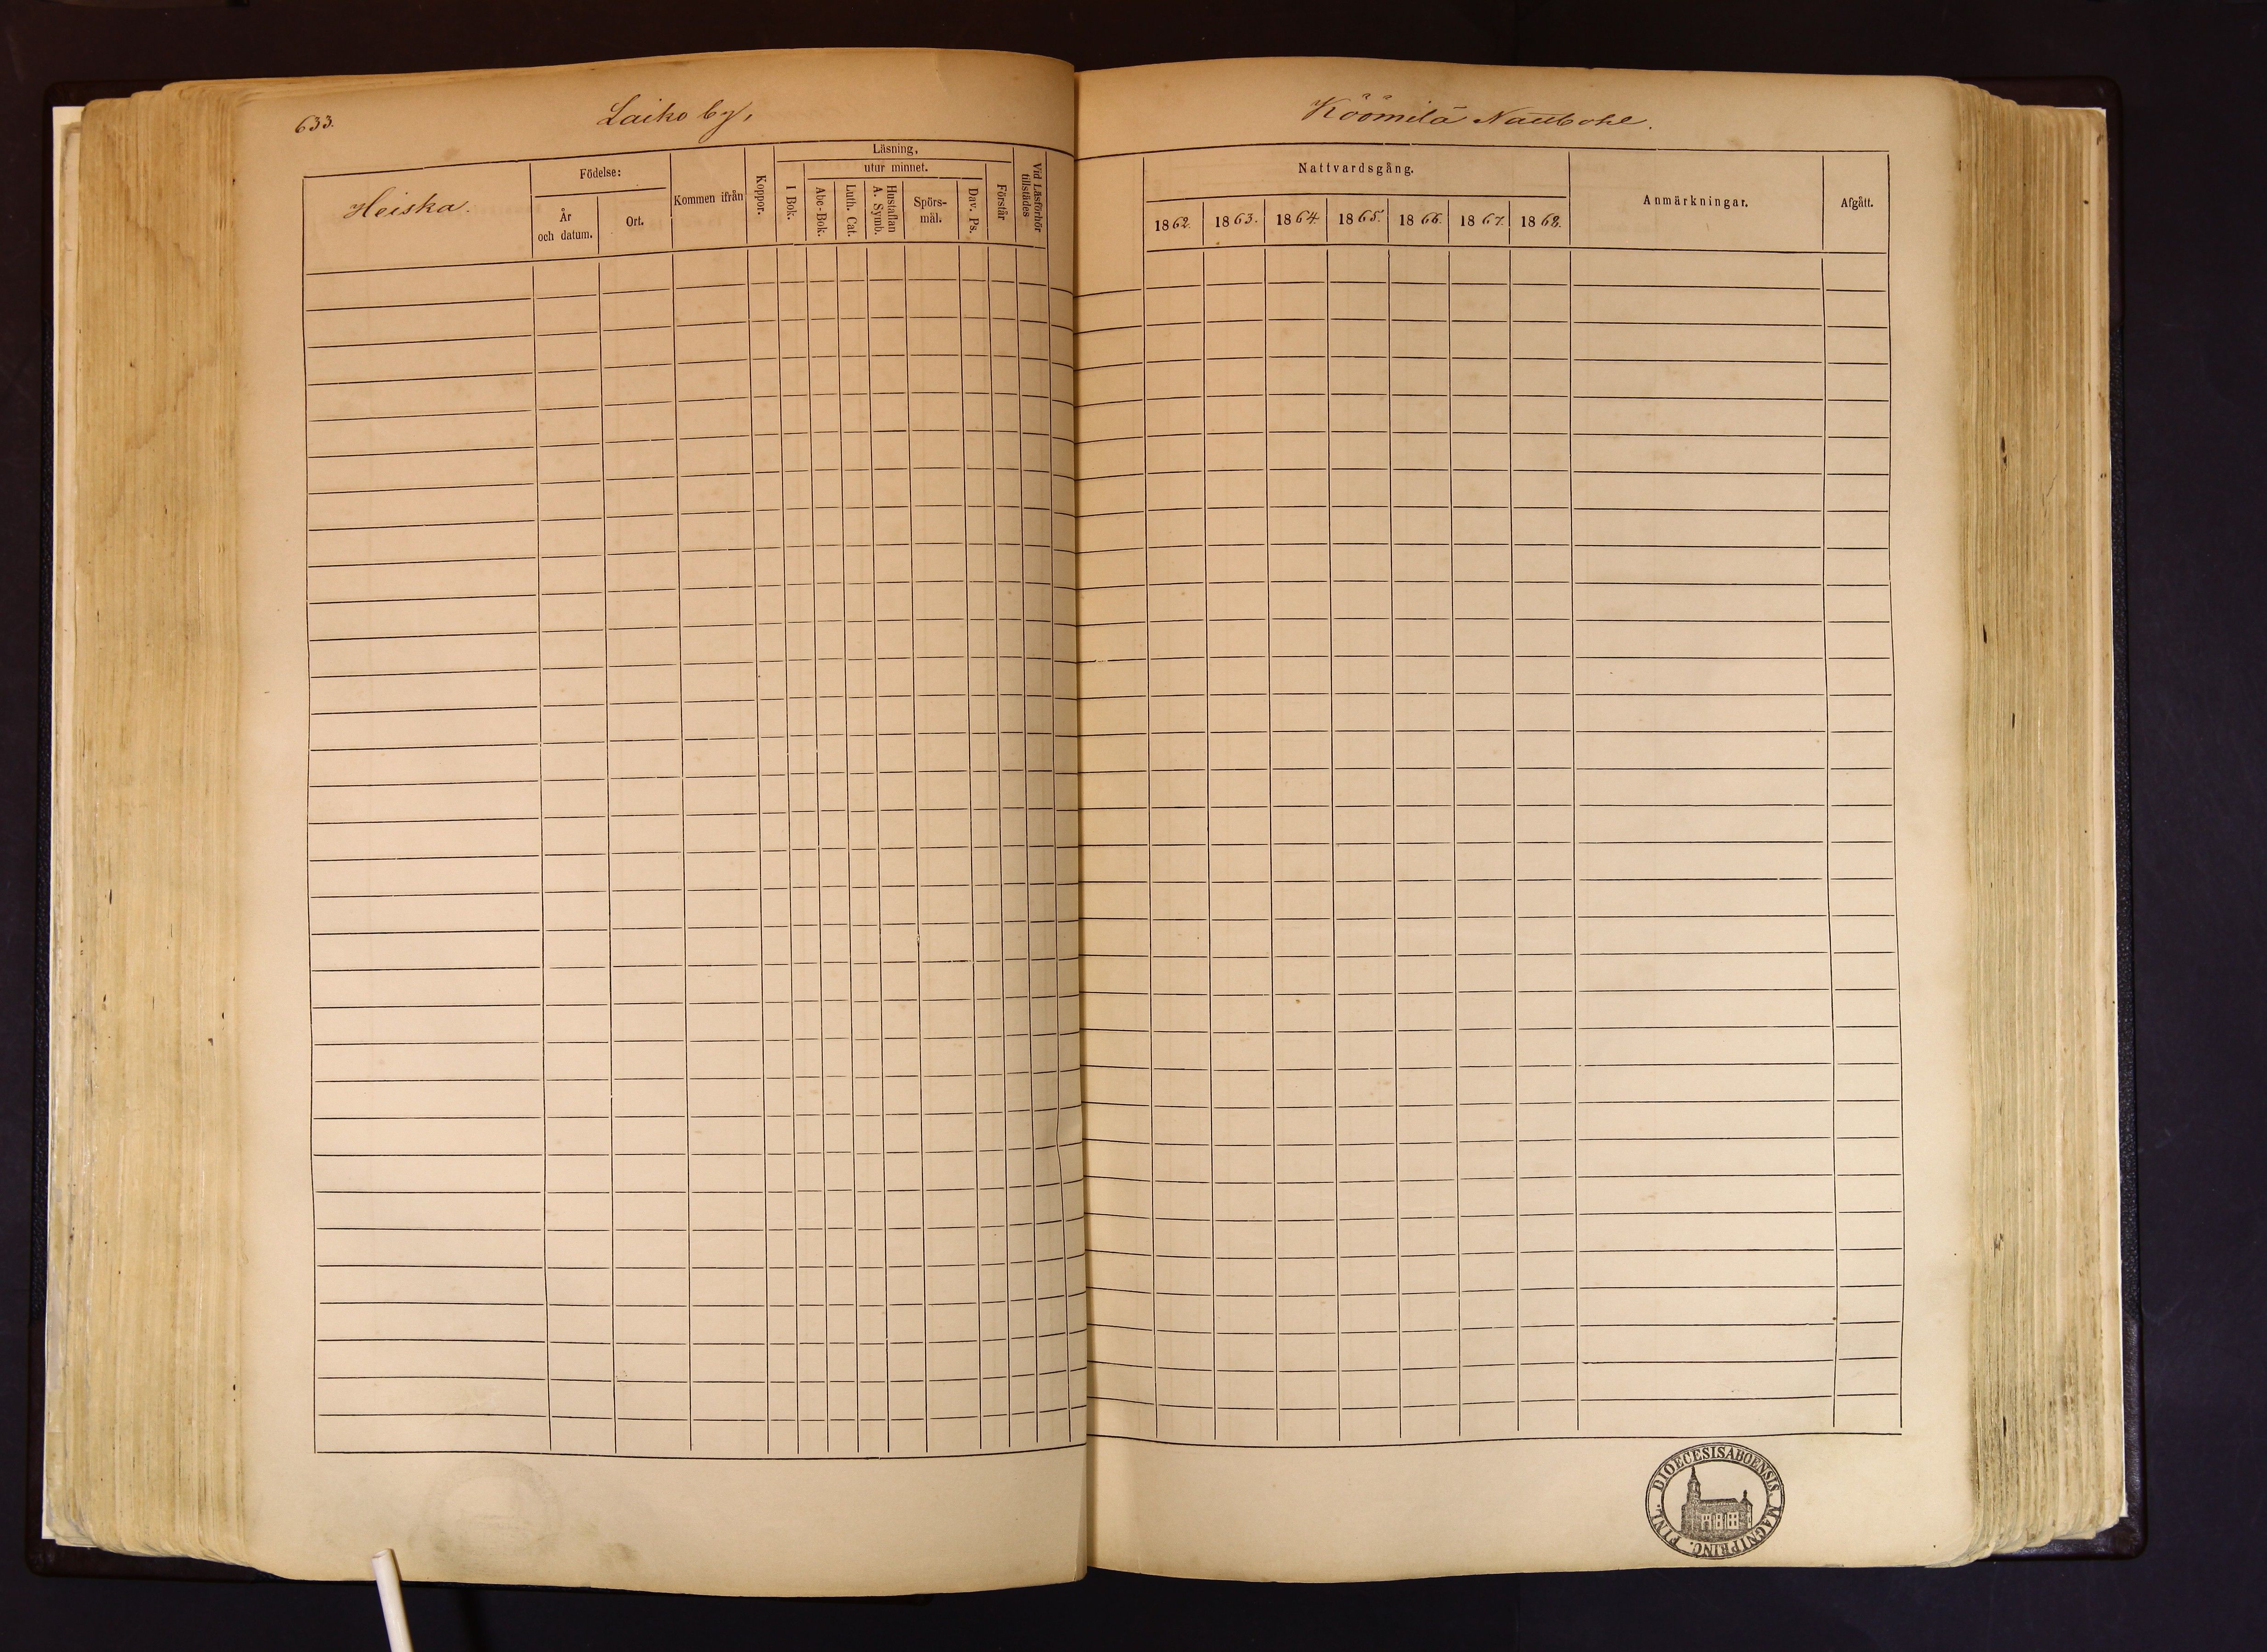 633.
Laiko by,
Heiska.
Födelse:
År och datum.
Ort.
Kommen ifrån
Koppor.
Läsning,
I Bok.
utur minnet.
Abc-Bok.
Luth. Cat.
Hustaflan A. Symb.
Spörs-mål.
Dav. Ps.
Förstår
Vid Läsförhör tillstädes
Köömilä
Nattvardsgång.
1862.
1863.
1864.
1865.
1866.
1867.
1868.
Anmärkningar.
Afgått.
DIOECESISABOENSIS. MAGNIPRINC. FINL.